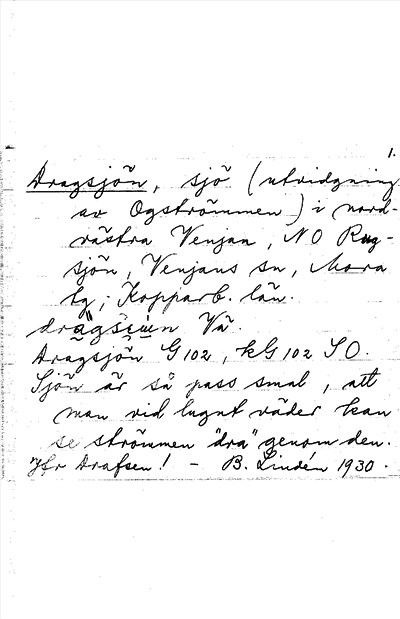 1.
Dragsjön, sjö (utvidgning
av Ogströmmen) i nord-
västra Venjan, NO Rag-
sjön, Venjans sn, Mora
tg; Kopparb. län.
Vå.
Dragsjön G 102, kG 102 SO.
Sjön är så pass smal, att
man vid lugnt väder kan
se strömmen "dra" genom den.
Jfr Drafsen! – B. Lindén 1930.